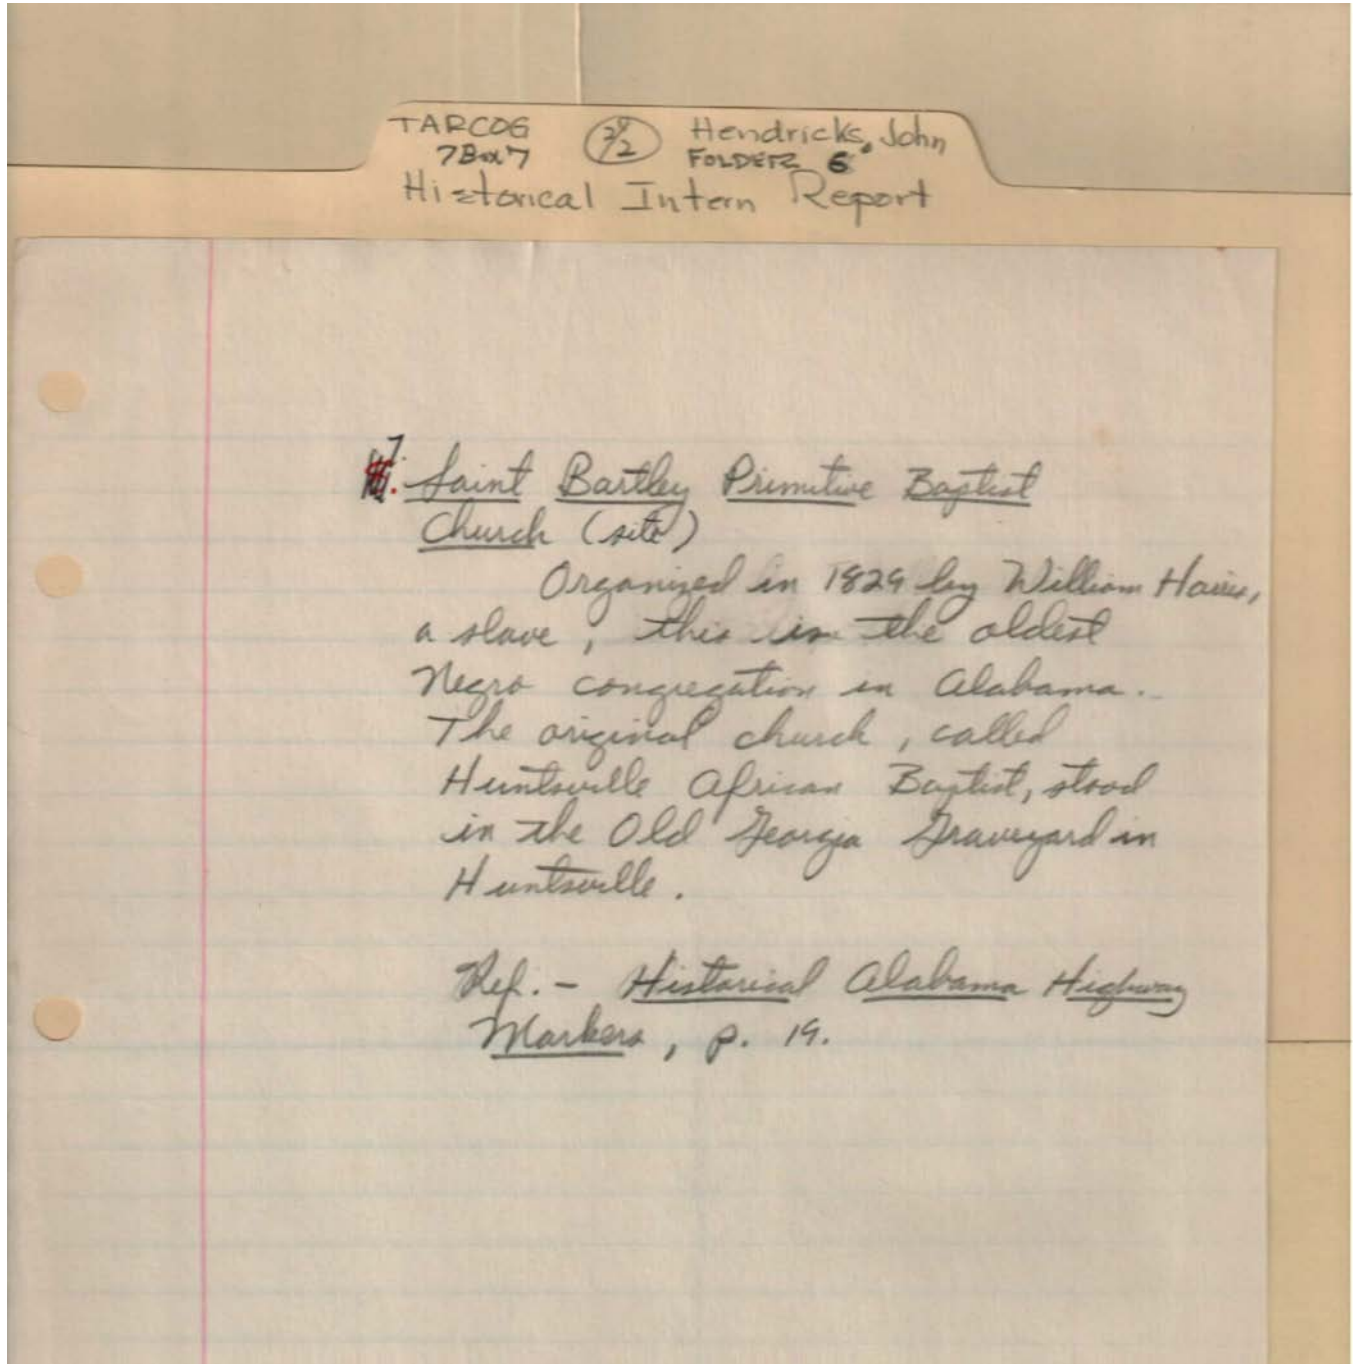 TARCOG Hendricks, John
7Box7 FOLDER 6
Historical Intern Report
7.
Saint Bartley Primitive Baptist
Church (site)
Organized in 1829 by William Harris,
a slave, this is the oldest
Negro congregation in Alabama.
The original church, called
Huntsville African Baptist, stood
in the Old Georgia Graveyard in
Huntsville.
Ref. - Historical Alabama Highway
Markers, p. 19.